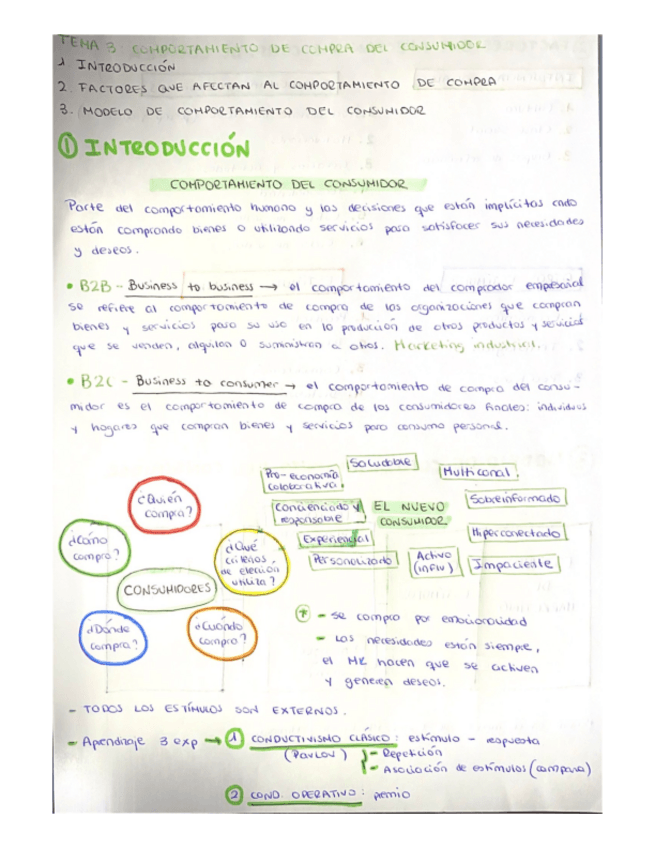 TEMA 3: COMPORTAMIENTO DE COMPRA DEL CONSUMIDOR
1 INTRODUCCIÓN
2. FACTORES QUE AFECTAN AL COMPORTAMIENTO DE COMPRA
3. MODELO DE COMPORTAMIENTO DEL CONSUMIDOR
① INTRODUCCIÓN
COMPORTAMIENTO DEL CONSUMIDOR
Parte del comportamiento humano y las decisiones que están implícitas cndo
están comprando bienes o utilizando servicios para satisfacer sus necesidades
y deseos.
• B2B - Business to business → el comportamiento del comprador empresarial
se refiere al comportamiento de compra de las organizaciones que compran
bienes y servicios para su uso en la producción de otros productos y servicios
que se venden, alquilan o suministran a otros. Marketing industrial.
• B2C - Business to consumer → el comportamiento de compra del consu-
midor es el comportamiento de compra de los consumidores finales: individuos
y hogares que compran bienes y servicios para consumo personal.
¿Quién
compra?
¿Cómo
compra?
¿Qué
criterios
de elección
utiliza?
CONSUMIDORES
¿Dónde
compra?
¿Cuándo
compra?
Saludable
Pro-economía
colaborativa
Multicanal.
Concienciado y
responsable
EL NUEVO
CONSUMIDOR
Sobreinformado
Experiencial
Hiperconectado
Personalizado
Activo
(influ)
Impaciente
- se compra por emocionalidad
- Las necesidades están siempre,
el MK hacen que se activen
y generen deseos.
- TODOS LOS ESTÍMULOS SON EXTERNOS.
- Aprendizaje 3 exp → ① CONDUCTIVISMO CLÁSICO: estímulo - respuesta
(PAVLOV) } - Repetición
- Asociación de estímulos (campana)
② COND. OPERATIVO: premio